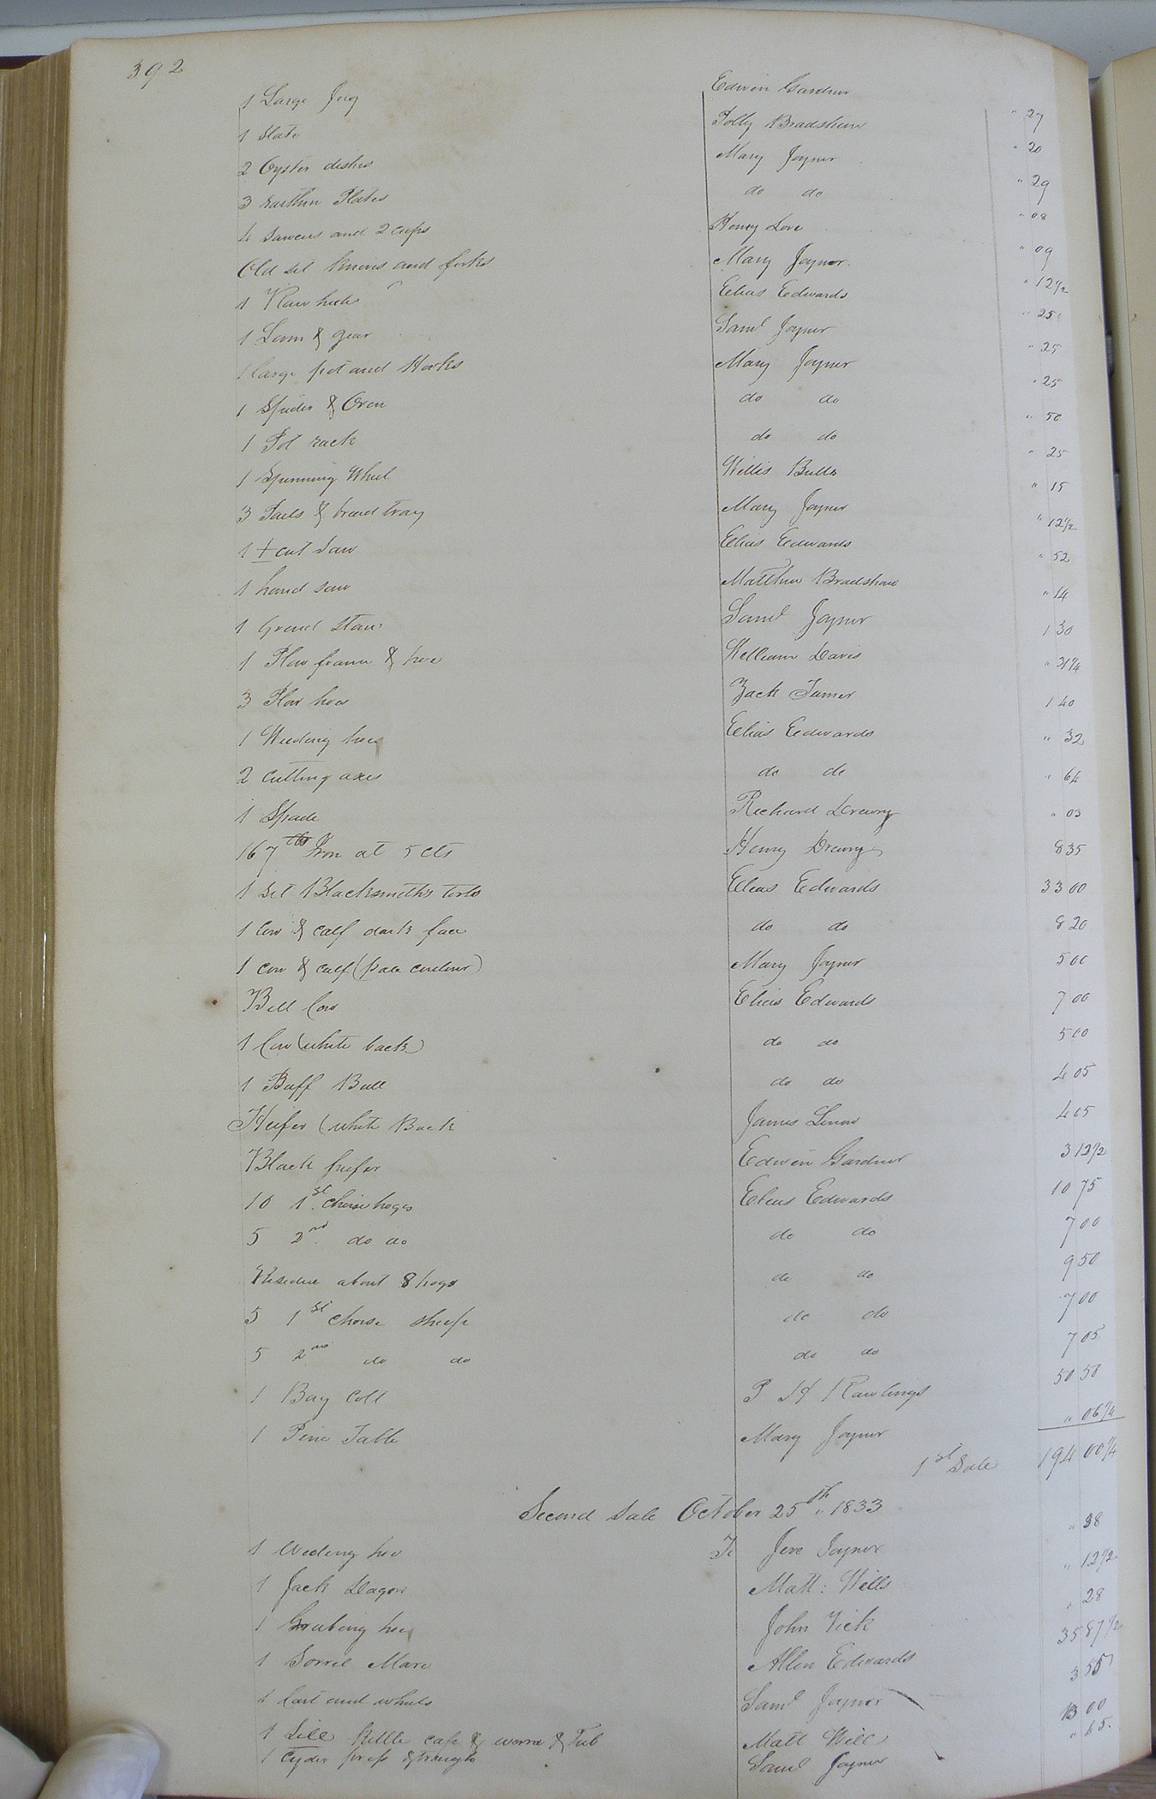 392
1 Large Jug Edwin Gardner " 27
1 Slate Polly Bradshaw " 20
2 Oyster dishes Mary Joyner " 29
3 earthen Plates do do " 08
4 Saucers and 2 cups Henry Love " 09
Old set knives and forks Mary Joyner " 12 1/2
1 Elias Edwards " 25
1 Loom & gear Saml Joyner " 25
1 large pot and Hooks Mary Joyner " 25
1 Spider & Oven do do " 50
1 Pot rack do do " 25
1 Spinning Wheel Willis Bulls " 15
3 Pails & bread tray Mary Joyner " 12 1/2
1 + cut Saw Elias Edwards " 52
1 hand saw Matthew Bradshaw " 14
1 Grind Stone Saml Joyner 1 30
1 Plow frame & hoe William Davis " 31 1/4
3 Plow hoes Zack Turner 1 40
1 Weeding hoe Elias Edwards " 32
2 cutting axes do do " 64
1 Spade Richard Drewry " 03
167 lb Iron at 5 cts Henry Drewry 8 35
1 set Blacksmith's tools Elias Edwards 33 00
1 Cow & calf dark face do do 8 20
1 cow & calf (pale colour) Mary Joyner 5 00
Bell Cow Elias Edwards 7 00
1 Cow (white back) do do 5 00
1 Buff Bull do do 4 05
Heifer (white Back James 4 05
Black heifer Edwin Gardner 3 12 1/2
10 1st. choise hogs Elias Edwards 10 75
5 2nd. do do do do 7 00
Residue about 8 hogs do do 9 50
5 1st choise sheep do do 7 00
5 2nd do do do do 7 05
1 Bay Colt P H Rawlings 50 50
1 Pine Table Mary Joyner " 06 1/4
1st Sale 194 00 1/4
Second Sale October 25th " 1833
1 Weeding hoe To Jere Joyner " 38
1 Jack Matt: Wills " 12 1/2
1 Grubing hoe John Vick " 28
1 Sorrel Mare Allen Edwards 35 87 1/2
1 Cart and wheels Saml Joyner 3 55
1 Still Kettle cap & worm & Tub Matt Wills 13 00
1 Cyder press & troughs Saml Joyner " 65